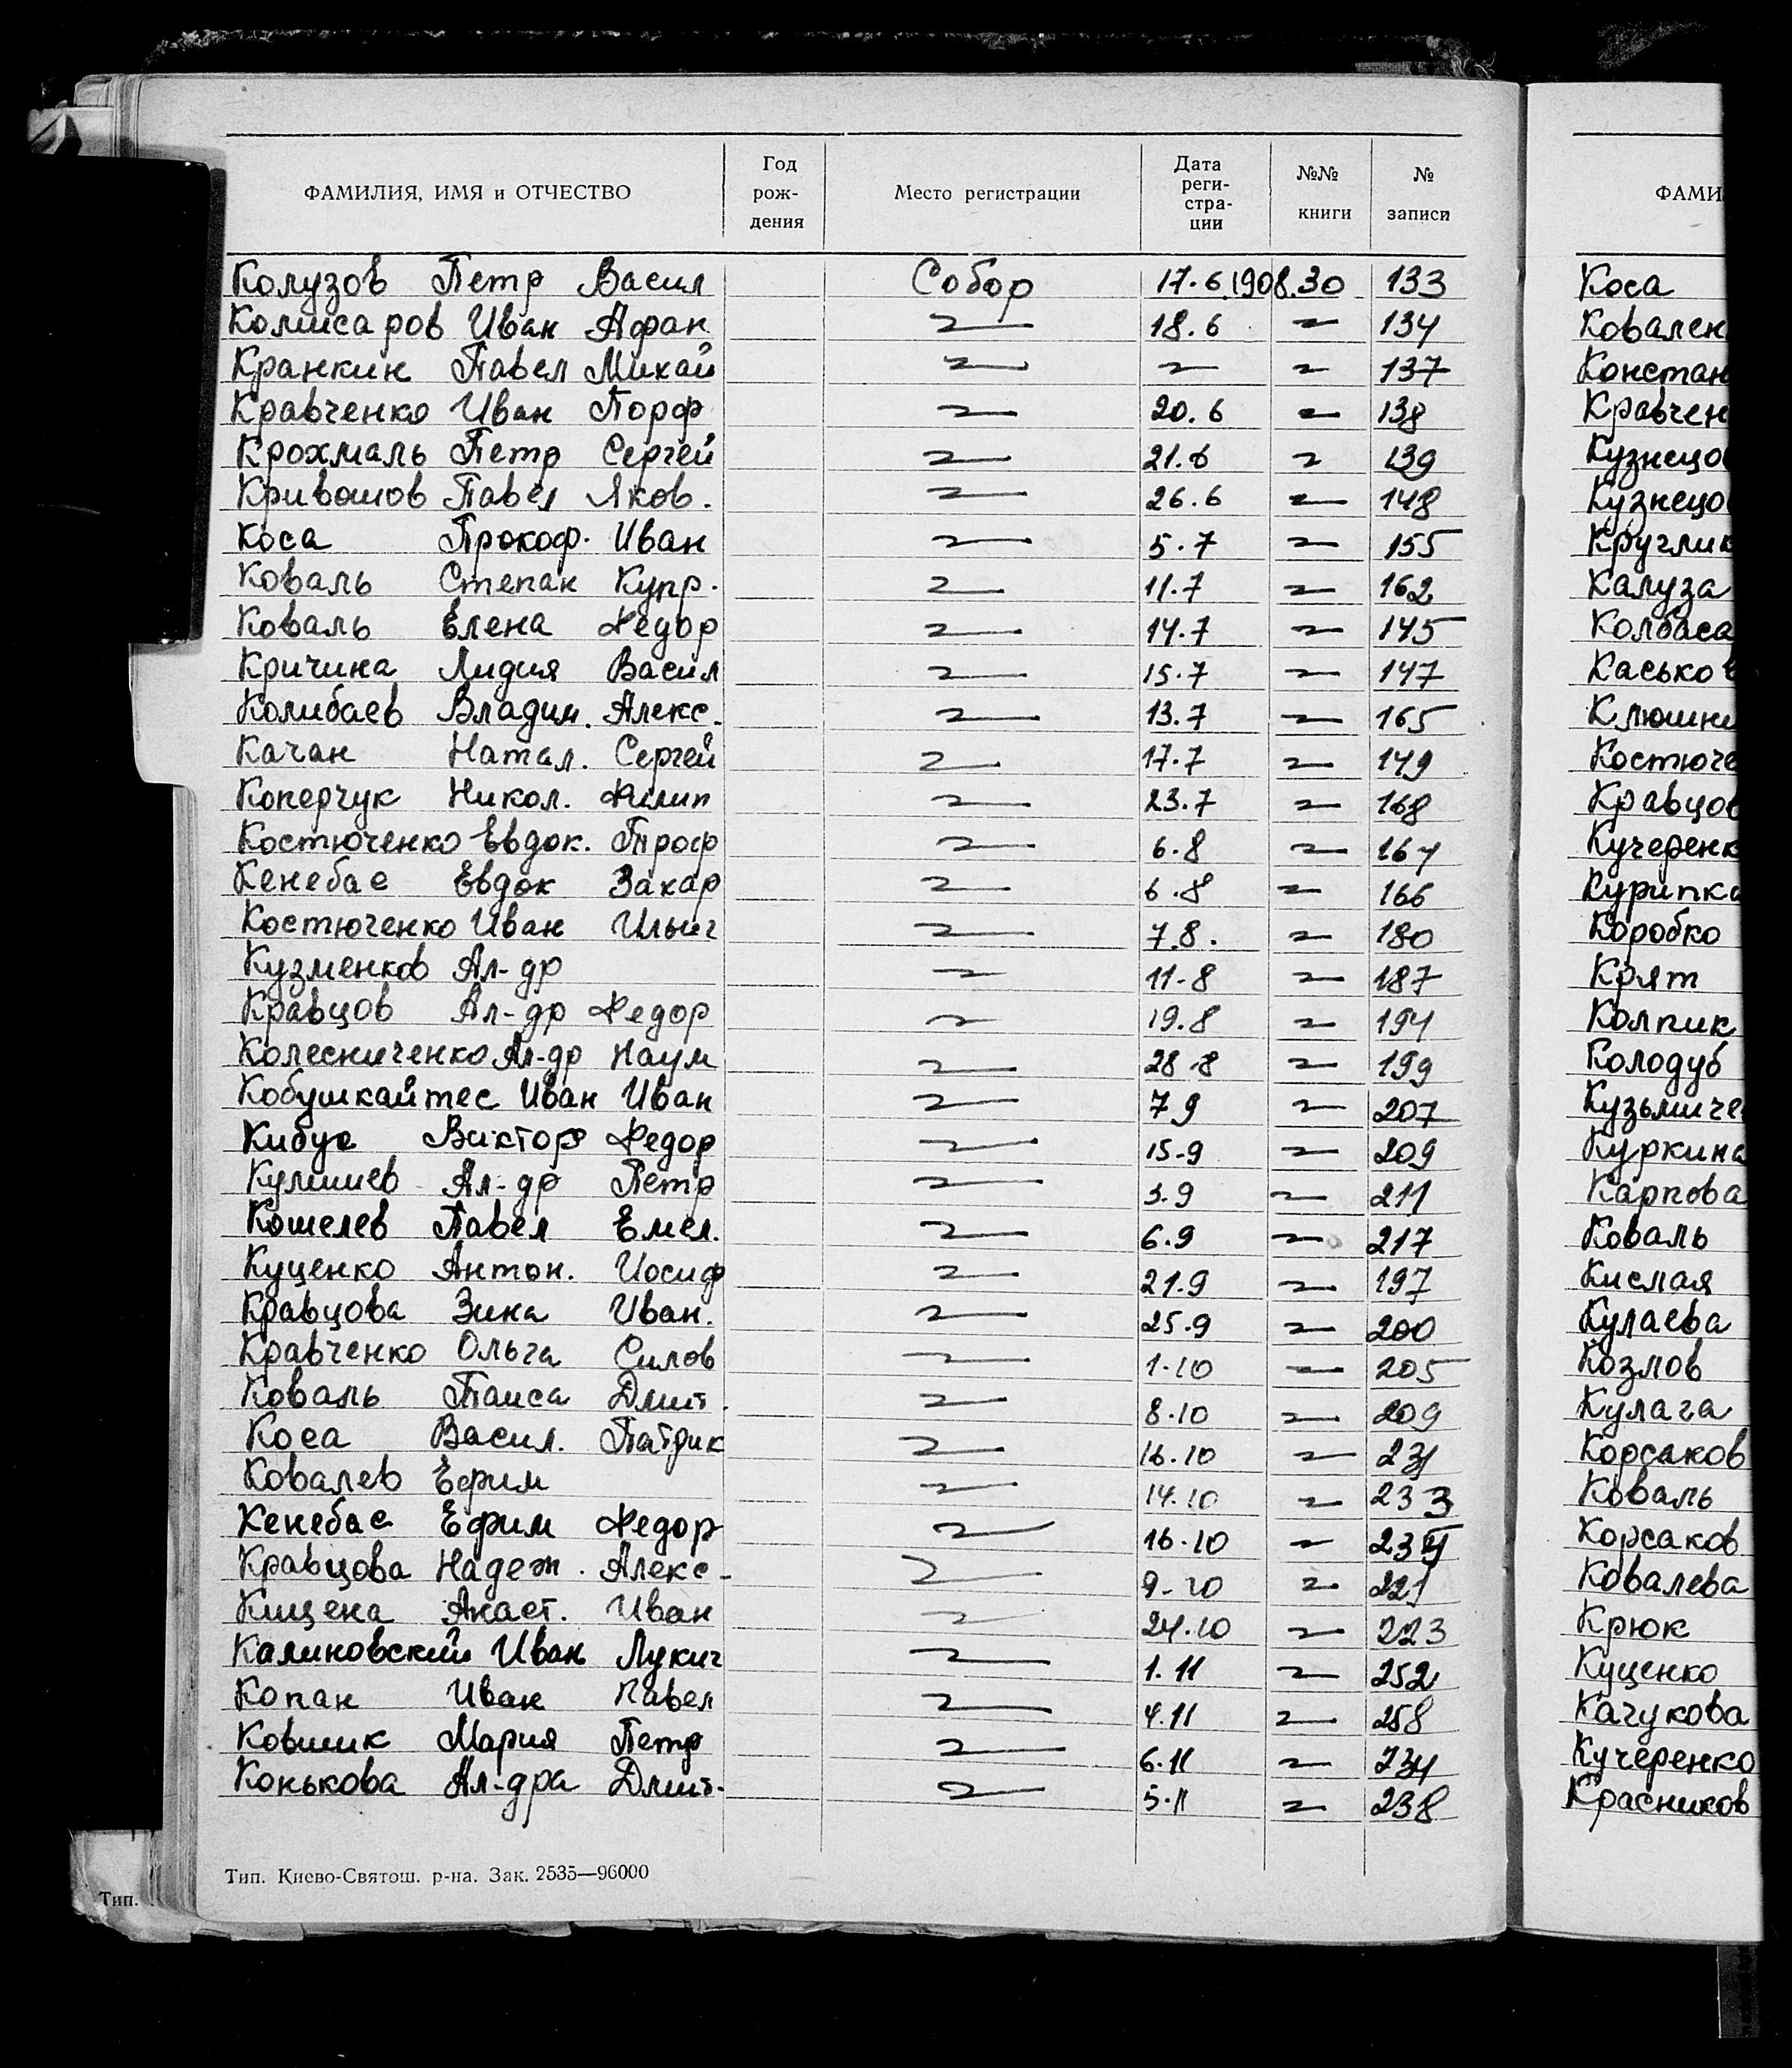 ФАМИЛИЯ, ИМЯ и ОТЧЕСТВО Год рождения Место регистрации Дата регистрации №№ книги № записи
Колузов Петр Васил Собор 17.6.1908. 30 133
Комисаров Иван Афан 〃 18.6 〃 134
Кранкин Павел Михай 〃 〃 〃 137
Кравченко Иван Порф 〃 20.6 〃 138
Крохмаль Петр Сергей 〃 21.6 〃 139
Кривошов Павел Яков. 〃 26.6 〃 148
Коса Прокоф. Иван 〃 5.7 〃 155
Коваль Степан Купр. 〃 11.7 〃 162
Коваль Елена Федор 〃 14.7 〃 145
Кричина Лидия Васил 〃 15.7 〃 147
Колибаев Владим. Алекс. 〃 13.7 〃 165
Качан Натал. Сергей 〃 17.7 〃 149
Коперчук Никол. Филип 〃 23.7 〃 168
Костюченко Евдок. Троф 〃 6.8 〃 164
Кенебас Евдок Захар 〃 6.8 〃 166
Костюченко Иван Ильич 〃 7.8. 〃 180
Кузменков Ал-др 〃 11-8 〃 187
Кравцов Ал-др Федор 〃 19.8 〃 194
Колесниченко Ал-др Наум 〃 28.8 〃 199
Кобушкайтес Иван Иван 〃 7 9 〃 207
Кибус Виктор Федор 〃 15-9 〃 209
Ал-др Петр 〃 3.9 〃 211
Кошелев Павел Емел. 〃 6.9 〃 217
Куценко Антон. Иосиф 〃 21.9 〃 197
Кравцова Зина Иван. 〃 25.9 〃 200
Кравченко Ольга Силов 〃 1-10 〃 205
Коваль Таиса Дмит. 〃 8.10 〃 209
Коса Васил. Патрик 〃 16.10 〃
Ковалев Ефим 〃 14.10 〃 233
Кенебас Ефим Федор 〃 16-10 〃
Кравцова Надеж. Алекс- 〃 9-10 〃 221
Кищена Анаст. Иван 〃 24.10 〃 223
Калиновский Иван Лукич 〃 1.11 〃 252
Копан Иван Павел 〃 4.11 〃 258
Ковшик Мария Петр 〃 6.11 〃 234
Конькова Ал-дра Дмит. 〃 5.11 〃 238
Тип. Киево-Святош. р-на. Зак. 2535—96000
Тип.
ФАМИ
Коса
Ковален
Констан
Кравчен
Кузнецо
Кузнецо
Круглик
Калуза
Колбаса
Каськов
Клюшни
Костюче
Кравцов
Кучеренк
Курипка
Коробко
Крят
Колпик
Колодуб
Кузьмиче
Куркина
Карпова
Коваль
Кислая
Кулаева
Козлов
Кулага
Корсаков
Коваль
Корсаков
Ковалева
Крюк
Куценко
Качукова
Кучеренко
Красников